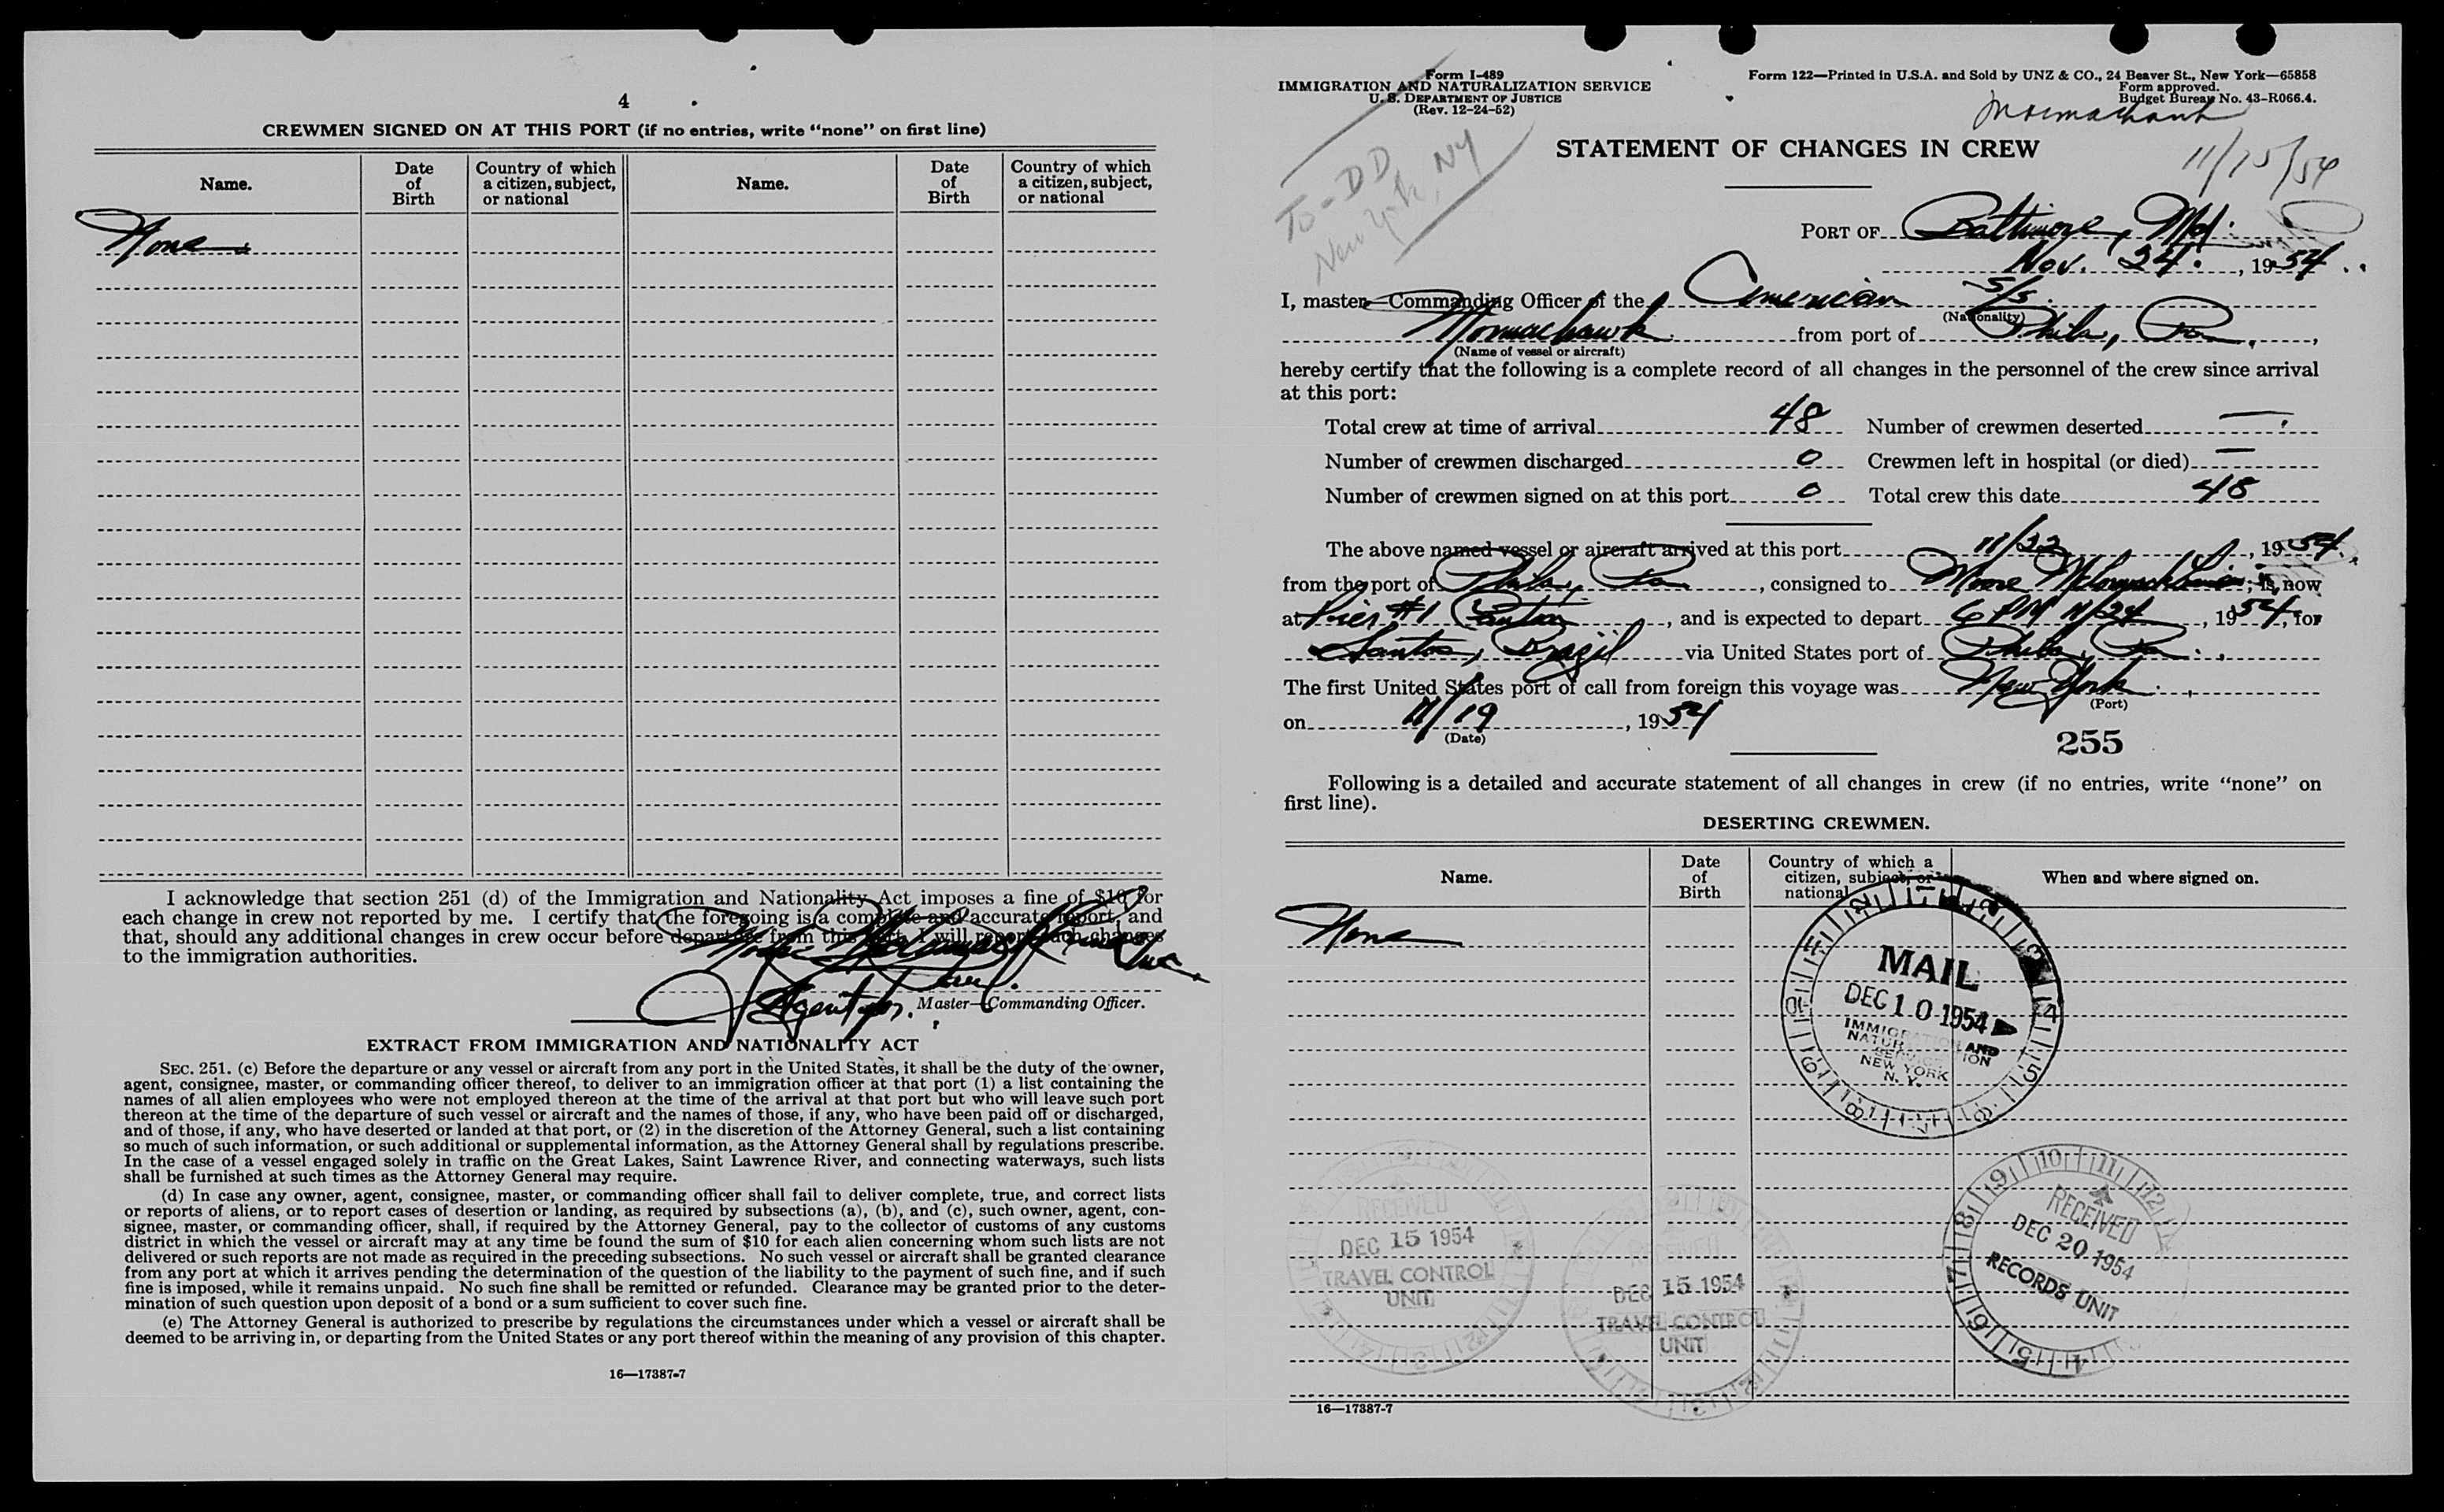 4
CREWMEN SIGNED ON AT THIS PORT (if no entries, write “none” on first line)
Name. Date of Birth Country of which a citizen, subject, or national Name. Date of Birth Country of which a citizen, subject, or national
None
I acknowledge that section 251 (d) of the Immigration and Nationality Act imposes a fine of $10 for
each change in crew not reported by me. I certify that the foregoing is a complete and accurate report, and
that, should any additional changes in crew occur before departure from this port, I will report such changes
to the immigration authorities.
Agent for. Master—Commanding Officer.
EXTRACT FROM IMMIGRATION AND NATIONALITY ACT
SEC. 251. (c) Before the departure or any vessel or aircraft from any port in the United States, it shall be the duty of the owner,
agent, consignee, master, or commanding officer thereof, to deliver to an immigration officer at that port (1) a list containing the
names of all alien employees who were not employed thereon at the time of the arrival at that port but who will leave such port
thereon at the time of the departure of such vessel or aircraft and the names of those, if any, who have been paid off or discharged,
and of those, if any, who have deserted or landed at that port, or (2) in the discretion of the Attorney General, such a list containing
so much of such information, or such additional or supplemental information, as the Attorney General shall by regulations prescribe.
In the case of a vessel engaged solely in traffic on the Great Lakes, Saint Lawrence River, and connecting waterways, such lists
shall be furnished at such times as the Attorney General may require.
(d) In case any owner, agent, consignee, master, or commanding officer shall fail to deliver complete, true, and correct lists
or reports of aliens, or to report cases of desertion or landing, as required by subsections (a), (b), and (c), such owner, agent, con-
signee, master, or commanding officer, shall, if required by the Attorney General, pay to the collector of customs of any customs
district in which the vessel or aircraft may at any time be found the sum of $10 for each alien concerning whom such lists are not
delivered or such reports are not made as required in the preceding subsections. No such vessel or aircraft shall be granted clearance
from any port at which it arrives pending the determination of the question of the liability to the payment of such fine, and if such
fine is imposed, while it remains unpaid. No such fine shall be remitted or refunded. Clearance may be granted prior to the deter-
mination of such question upon deposit of a bond or a sum sufficient to cover such fine.
(e) The Attorney General is authorized to prescribe by regulations the circumstances under which a vessel or aircraft shall be
deemed to be arriving in, or departing from the United States or any port thereof within the meaning of any provision of this chapter.
16—17387-7
Form I-489
IMMIGRATION AND NATURALIZATION SERVICE
U. S. DEPARTMENT OF JUSTICE
(Rev. 12-24-52)
Form 122—Printed in U.S.A. and Sold by UNZ & CO., 24 Beaver St., New York—65858
Form approved.
Budget Bureau No. 43-R066.4.
Mormachawk
11/15/54
To - DD
New York, NY
STATEMENT OF CHANGES IN CREW
PORT OF Baltimore, Md.
Nov. 24, 1954
I, master—Commanding Officer of the American S/S
(Nationality)
Mormachawk from port of Phila, Pa.,
(Name of vessel or aircraft)
hereby certify that the following is a complete record of all changes in the personnel of the crew since arrival
at this port:
Total crew at time of arrival 48 Number of crewmen deserted —
Number of crewmen discharged 0 Crewmen left in hospital (or died) —
Number of crewmen signed on at this port 0 Total crew this date 48
The above named vessel or aircraft arrived at this port 11/22, 1954,
from the port of Phila, Pa, consigned to Moore McCormack Lines; is now
at Pier #1 Canton, and is expected to depart 6 PM 11/24, 1954, for
Santos, Brazil via United States port of Phila, Pa.
The first United States port of call from foreign this voyage was New York.
(Port)
on 11/19, 1954
(Date)
255
Following is a detailed and accurate statement of all changes in crew (if no entries, write “none” on
first line).
DESERTING CREWMEN.
Name. Date of Birth Country of which a citizen, subject, or national When and where signed on.
None
MAIL
DEC 10 1954
IMMIGRATION AND
NATURALIZATION
SERVICE
NEW YORK
N. Y.
RECEIVED
DEC 15 1954
TRAVEL CONTROL
UNIT
RECEIVED
DEC 15 1954
TRAVEL CONTROL
UNIT
RECEIVED
DEC 20 1954
RECORDS UNIT
16—17387-7